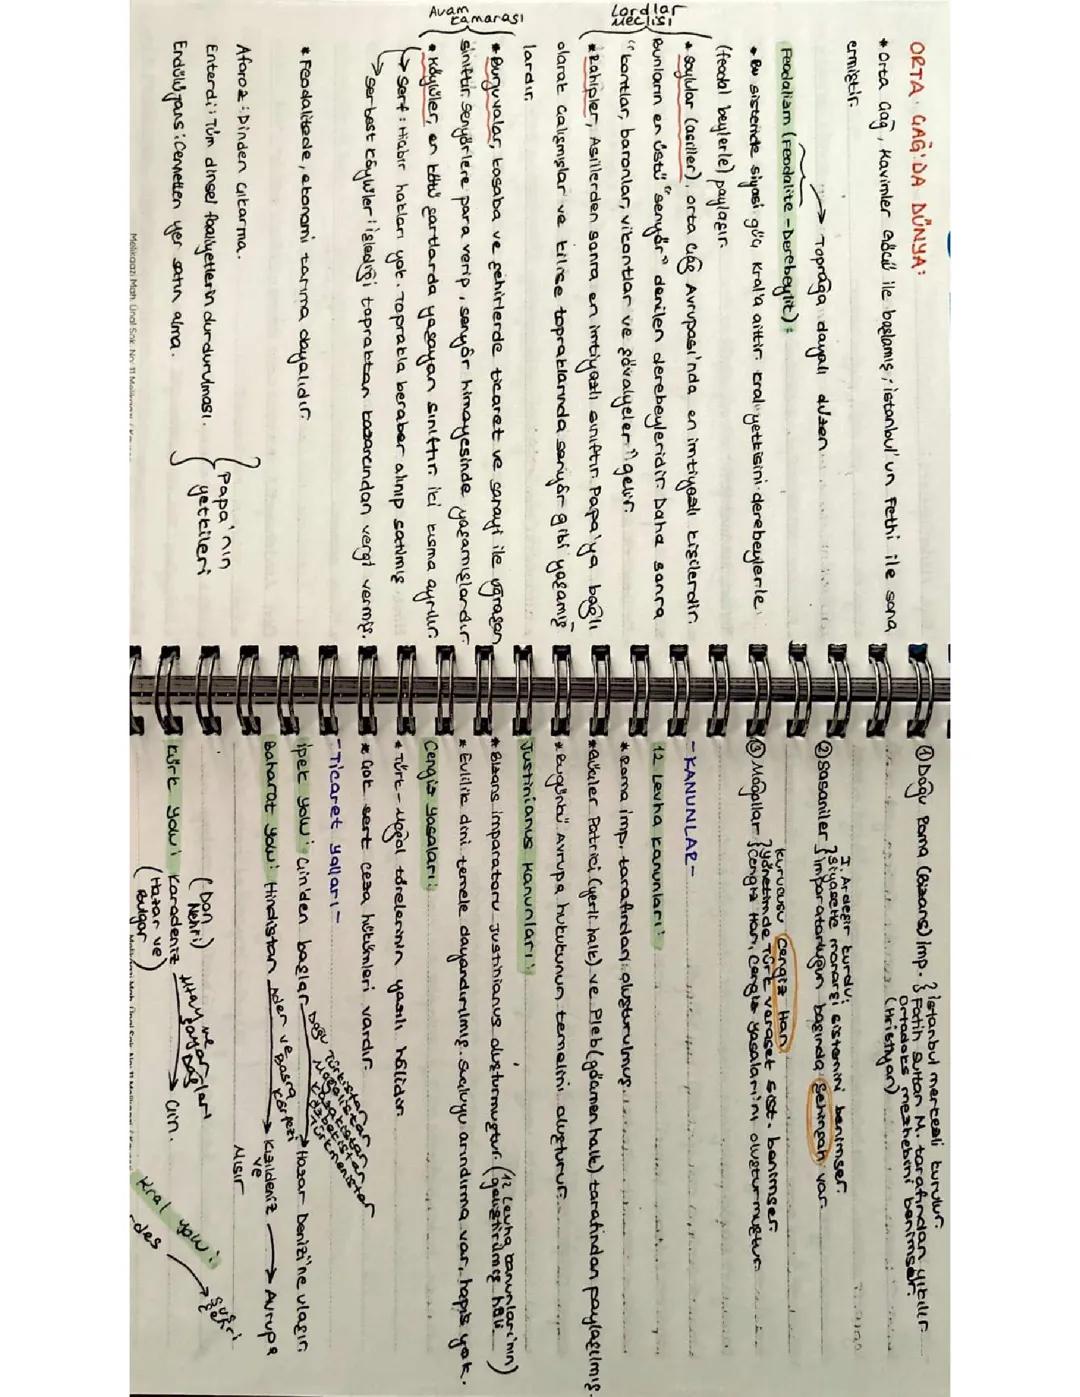 ORTA ÇAĞ'DA DÜNYA:
* Orta Çağ, Kavimler Göçü ile başlamış, İstanbul'un Fethi ile sona
ermiştir.
→ Toprağa dayalı düzen
Feodalizm (Feodalite - Derebeylik):
* Bu sistemde siyasi güç Kral'a aittir. Kral yetkisini derebeylerle
(feodal beylerle) paylaşır.
Lordlar
Meclisi
* Soylular (asiller), orta Çağ Avrupası'nda en imtiyazlı kişilerdir.
Bunların en üstü "senyör" denilen derebeyleridir. Daha sonra
"kontlar, baronlar, vikontlar ve şövalyeler" gelir.
* Rahipler, Asillerden sonra en imtiyazlı sınıftır. Papa'ya bağlı
olarak çalışmışlar ve kilise topraklarında senyör gibi yaşamış
lardır.
Avam
Kamarası
* Burjuvalar, kasaba ve şehirlerde ticaret ve sanayi ile uğraşan
sınıftır. Senyörlere para verip, senyör himayesinde yaşamışlardır.
* Köylüler, en kötü şartlarda yaşayan sınıftır. iki kısma ayrılır.
→ Serf: Hiçbir hakları yok. Toprakla beraber alınıp satılmış
→ Serbest köylüler: işlediği topraktan kazancından vergi vermiş.
* Feodalitede, ekonomi tarıma dayalıdır.
Aforoz: Dinden çıkarma.
Enterdi: Tüm dinsel faaliyetlerin durdurulması.
Endülüjans: Cennetten yer satın alma.
Papa'nın
yetkileri
① Doğu Roma (Bizans) imp. { İstanbul merkezli kurulur.
Fatih Sultan M. tarafından yıkılır
Ortodoks mezhebini benimser.
(Hristiyan)
I. Ardeşir kurdu.
② Sasaniler { Siyasette monarşi sistemini benimser.
İmparatorluğun başında Şehinşah var.
kurucusu Cengiz Han
③ Moğollar { Yönetimde Türk veraset sist. benimser.
Cengiz Han, Cengiz yasalarını oluşturmuştur.
- KANUNLAR -
12 Levha Kanunları:
* Roma imp. tarafından oluşturulmuş.
* Güçler Patrici (yerli halk) ve Pleb (göçmen halk) tarafından paylaşılmış.
* Bugünkü Avrupa hukukunun temelini oluşturur.
Justinianus Kanunları:
* Bizans imparatoru Justinianus oluşturmuştur. (12 Levha kanunları'nın
geliştirilmiş hâli)
* Evlilik dini temele dayandırılmış. Suçluyu arındırma var, hapis yok.
Cengiz Yasaları:
* Türk - Moğol törelerinin yazılı hâlidir.
* Çok sert ceza hükümleri vardır.
- Ticaret Yolları -
İpek Yolu: Çin'den başlar → Hazar Denizi'ne ulaşır.
Doğu Türkistan
Moğolistan
Kazakistan
Özbekistan
Türkmenistan
Baharat Yolu: Hindistan → Kızıldeniz → Avrupa
Aden ve
Basra
Körfezi
ve
Mısır
(Don
Nehri)
Kürk Yolu: Karadeniz → Çin.
(Hazar ve
Bulgar)
Altay
ve
Kral Yolu: